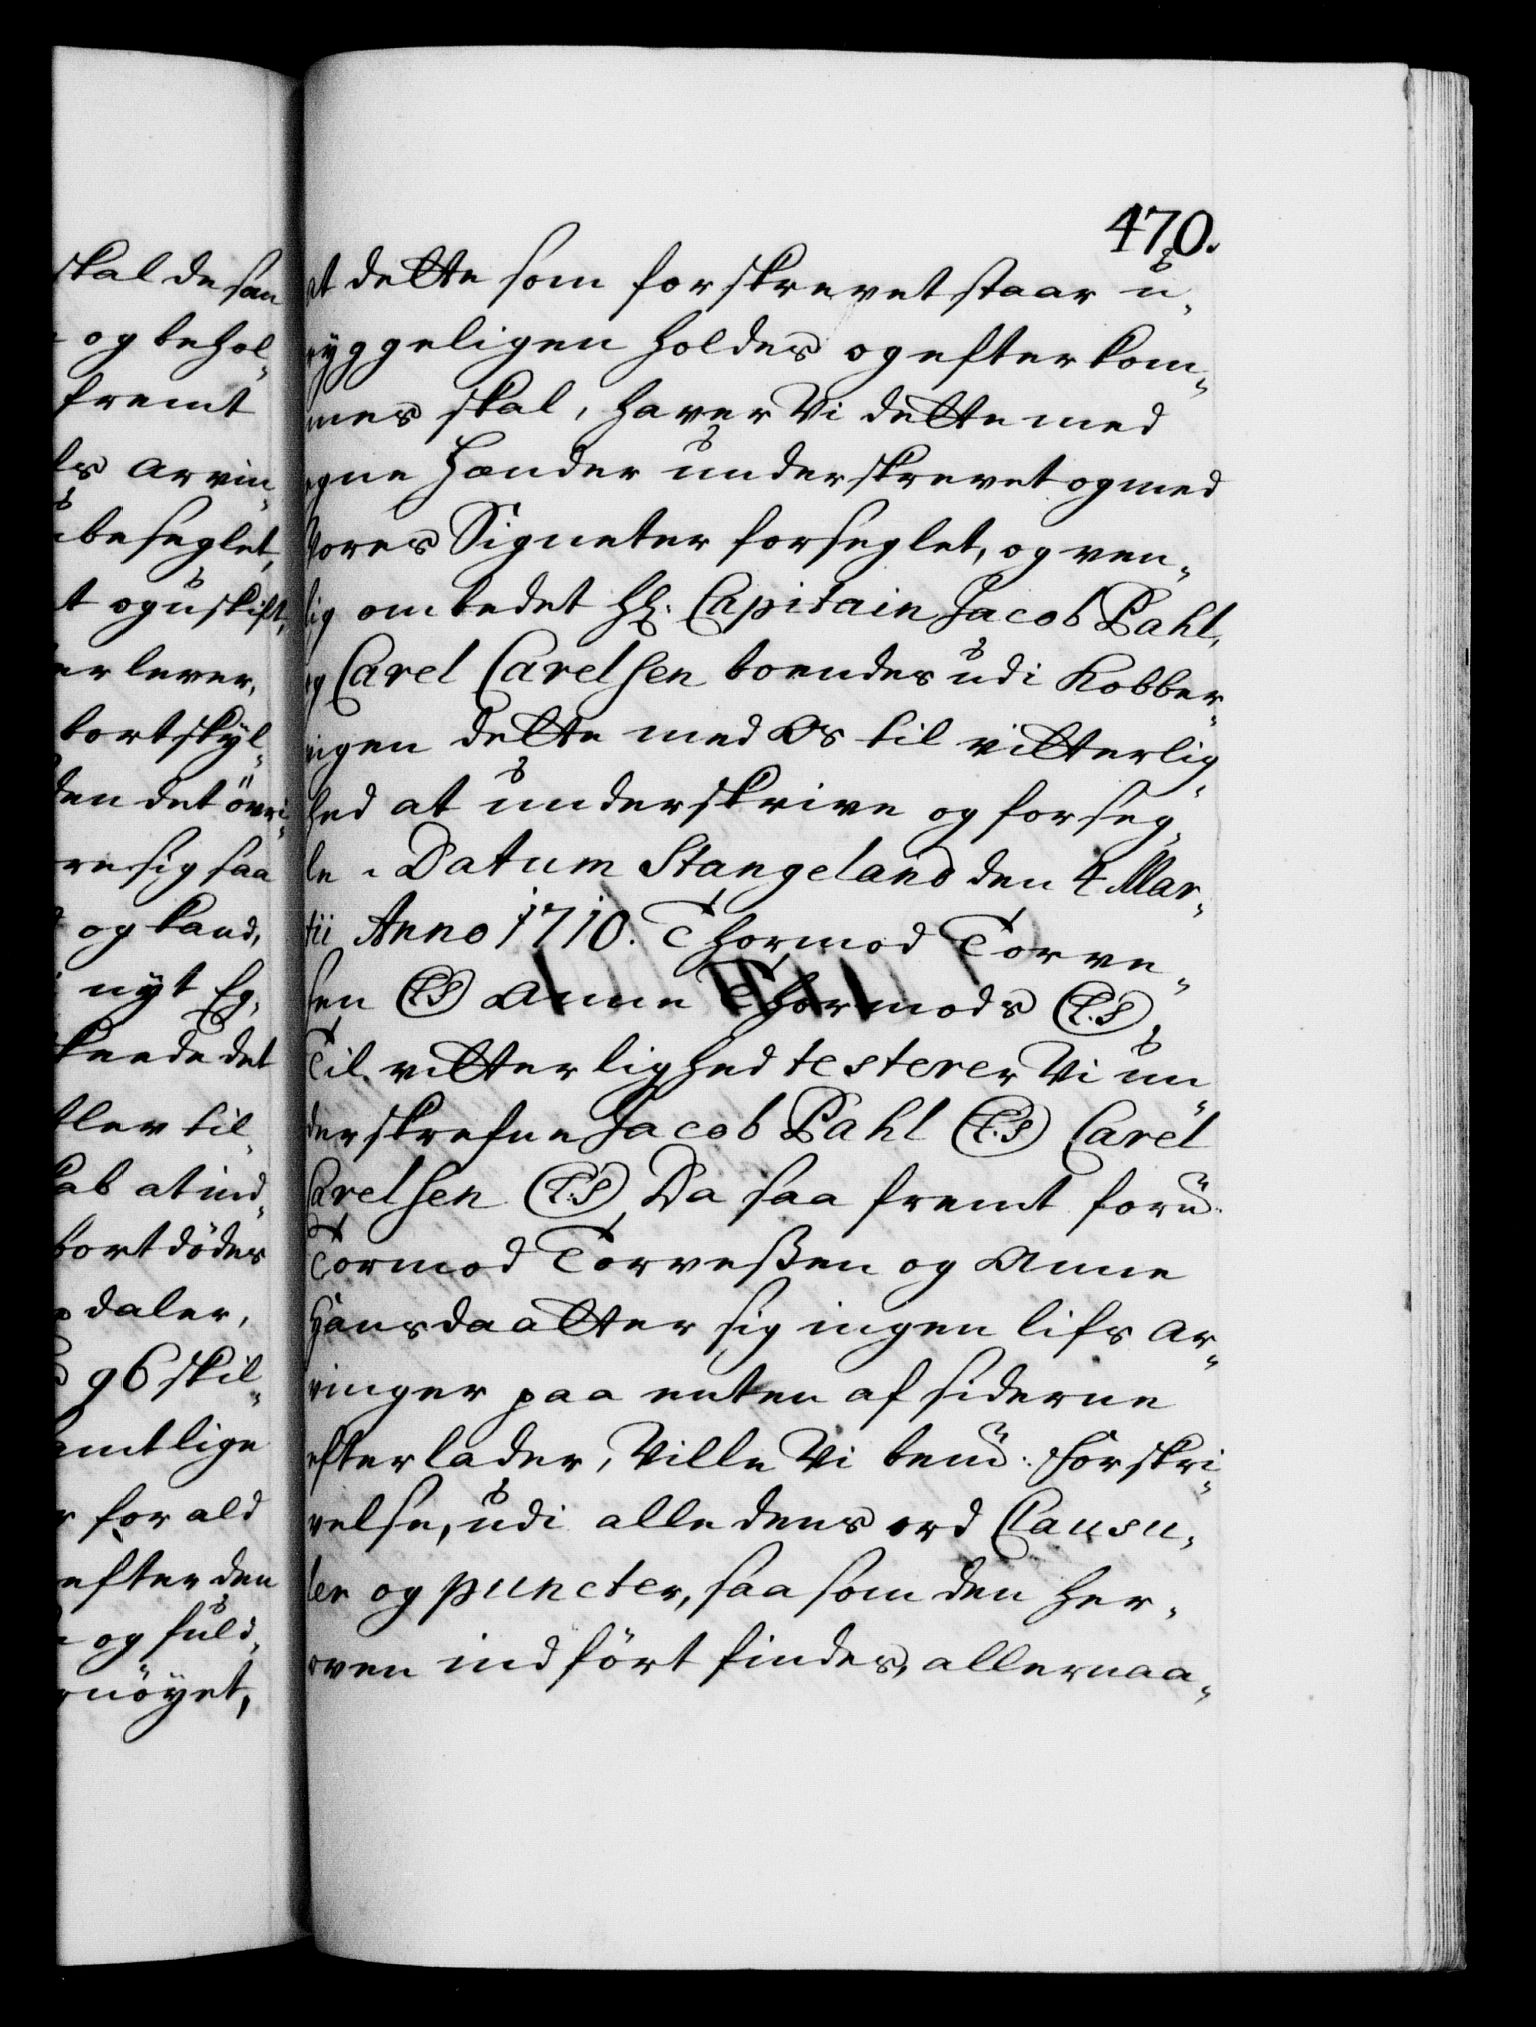 470.
skal de sam
og behol-
fremt
ls Arvin-
beseglet,
t og uskift,
er lever,
bortskyl-
den det övri-
re sig saa
og kand,
nyt Eg-
skeede det
bler til-
kab at ind-
bortdödes
daler,
96 skil-
amtlige
for ald
efter den
og fuld-
nöyet,
at dette som forskrevet staar u-
ryggeligen holdes og efterkom-
mes skal, haver Vi dette med
egne Hænder underskrevet og med
Vores Signeter forseglet, og ven-
lig ombedet Hr. Capitain Jacob Pahl,
og Carel Carelsen boendes udi Kobber-
vigen dette med Os til vitterlig-
hed at underskrive og forseg-
le. Datum Stangeland den 4 Mar-
tii Anno 1710. Thormod Torve-
sen (L.S) Anne Thormods (L.S),
Til vitterlighed testerer Vi un-
derskrefne Jacob Pahl (L.S) Carel
Carelsen (L.S) Da saa fremt foru.
Tormod Torveßen og Anne
Hansdaatter sig ingen lifs Ar-
vinger paa enten af siderne
efterlader, Ville Vi bem.: Forskri-
velse, udi alle dens ord Clausu-
ler og puncter, saa som den her-
oven indfört findes, allernaa-